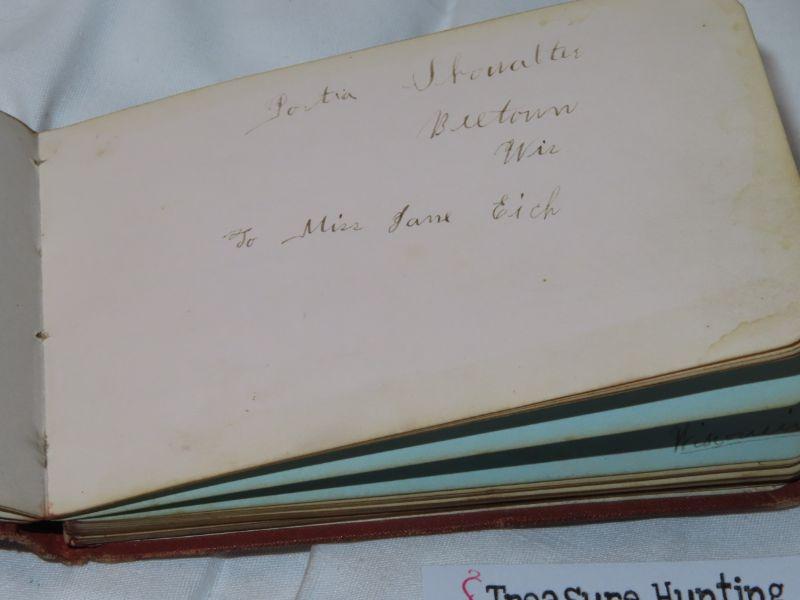 Portia Showalter
Beetown
Wis
To Miss Jane Eich
Wisconsin
Treasure Hunting